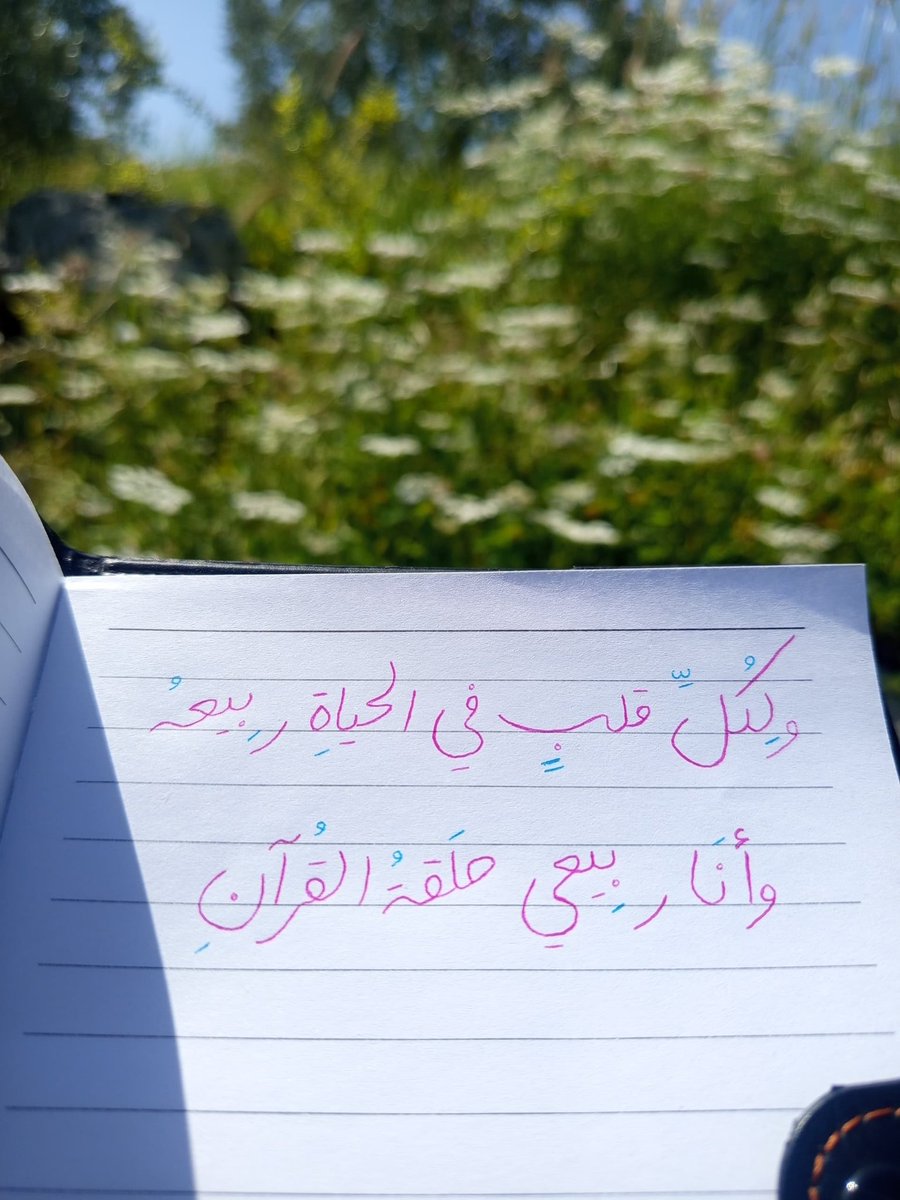 ولِكُلِّ قلبٍ في الحياةِ ربِيعهُ
وأنَا ربِيعي حلَقةُ القُرآنِ